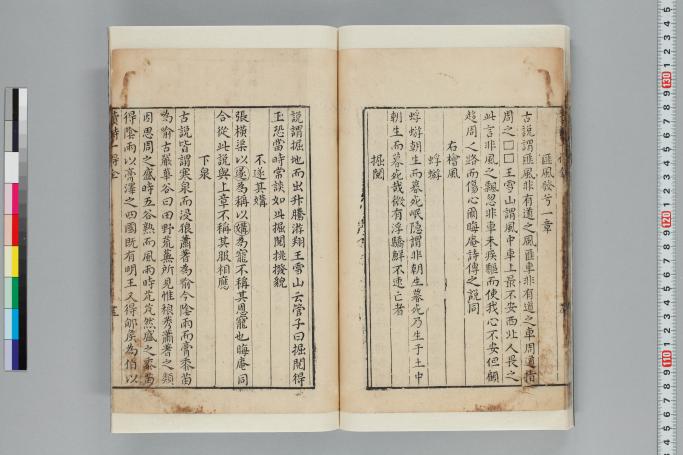 匪風發兮一章
古說謂匪風非有道之風匪車非有道之車周道指
周之□□王雪山謂風中車上最不安西北人畏之
此言非風之飄忽非車未疾驅而使我心不安但顧
趍周之路而傷心爾晦庵詩傳之說同
右檜風
蜉蝣
蜉蝣朝生而暮死岷隱謂非朝生暮死乃生于土中
朝生而暮死哉俶有浮驕鮮不速亡者
掘閱
說謂掘地而出升騰游翔王雪山云管子曰掘閱得
玉恐當時常談如此掘閱挑撥貌
不遂其媾
張橫渠以遂為稱以媾為寵不稱其恩寵也晦庵同
合從此說與上章不稱其服相應
下泉
古說皆謂寒泉而浸狼蕭蓍為喻今陰雨而膏黍苗
為喻古嚴華谷曰田野荒蕪所見惟稂莠蕭蓍之類
因思周之盛時五谷熟而風雨時芃芃然盛之黍苗
得陰雨以膏澤之四國既有明王又得郇侯為伯以